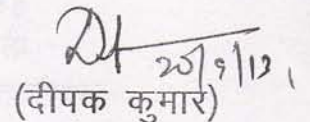 20/9/13
(दीपक कुमार)